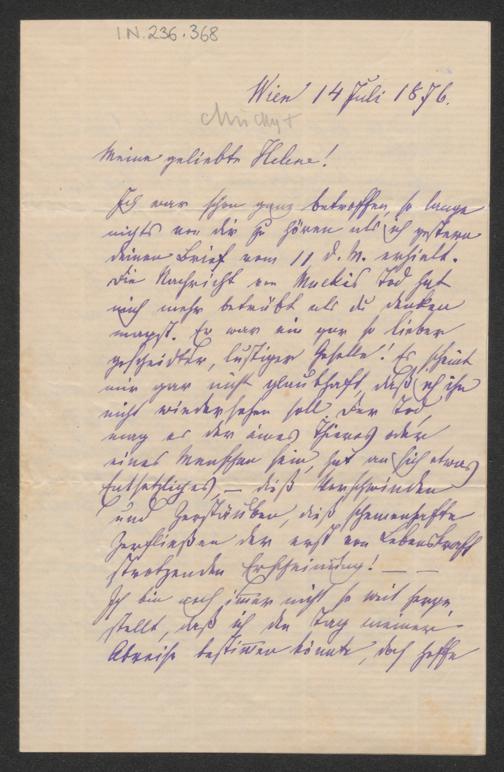 I.N. 236.368
Wien 14 Juli 1876.
Mucky +
Meine geliebte Helene!
Ich war schon ganz betroffen, so lange
nichts von dir zu hören als ich gestern
deinen Brief vom 11 d. M. erhielt.
Die Nachricht von Muckis Tod hat
mich mehr betrübt als du denken
magst. Er war ein gar so lieber
gescheidter, lustiger Geselle! Es scheint
mir gar nicht glaubhaft, daß ich ihn
nicht wiedersehen soll. Der Tod,
mag es der eines Thieres oder
eines Menschen sein, hat an sich etwas
Entsetzliches – dieß Verschwinden
und Zerstäuben, dieß schemenhafte
Zerfließen der erst von Lebenskraft
strotzenden Erscheinung! – –
Ich bin noch immer nicht so weit herge-
stellt, daß ich den Tag meiner
Abreise bestimmen könnte, doch hoffe